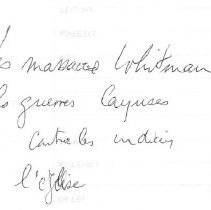 Les massacre Whitman
les guerres Cayuses
contre les indiens
l'église